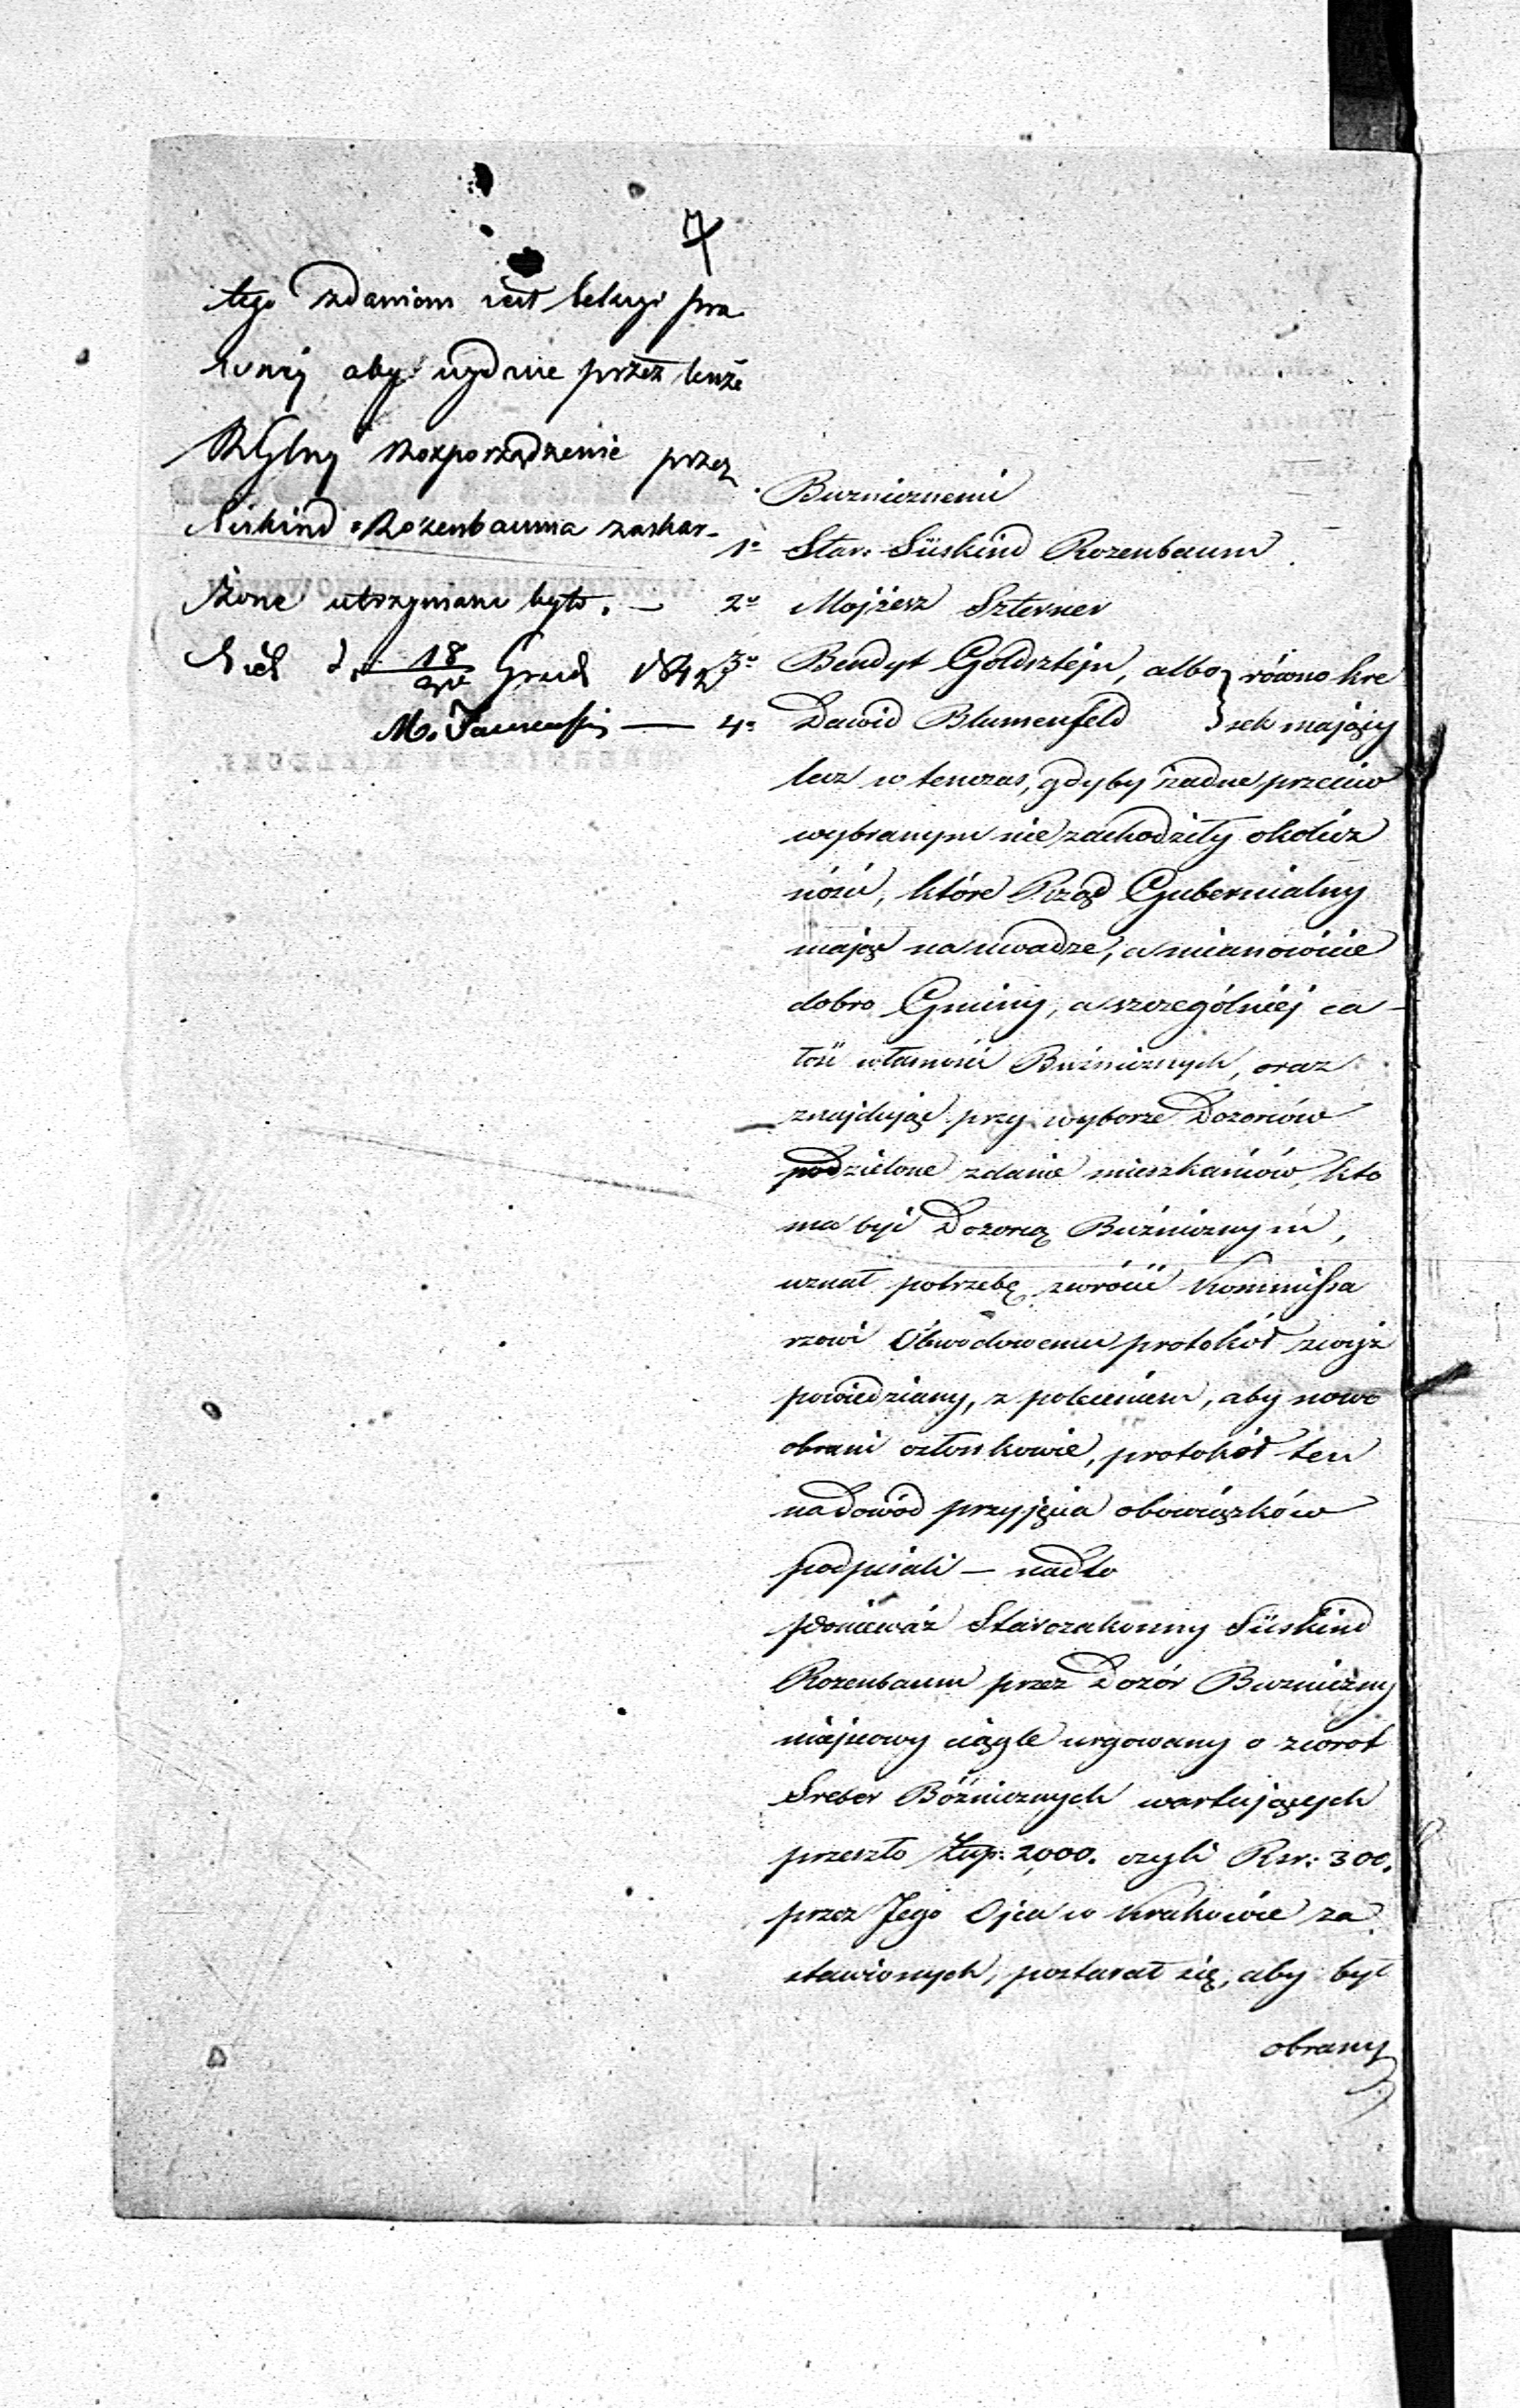 tego zdaniem jest Sekcyi pra
wnej aby wydane przez tenże
R Glny rozporządzenie przez
Siskind Rozenbauma zaskar-
żone utrzymane było. —
d. 18 Grud 1842
M.
Buzniczneni
1o Star: Süskind Rozenbaum
2o Mojżesz Szterner
3o Bendyt Goldsztejn, albo } równo kre
4o Dawid Blumenfeld } sek mający
lecz w tenczas, gdyby żadne przeciw
wybranym nie zachodziły okolicz
ności, które Rząd Gubernialny
mając na uwadze, a mianowicie
dobro Gminy, a szczególniej ca-
łość własności Buźnicznych, oraz
znajdując przy wyborze Dozorców
podzielone zdanie mieszkańców, kto
ma być Dozorcą Buźnicznym,
uznał potrzebę zwrócić Kommissa
rzowi Obwodowemu protokół zwyż
powiedziany, z poleceniem, aby nowo
obrani członkowie, protokół ten
na dowód przyjęcia obowiązków
podpisali — nadto
ponieważ Starozakonny Süskind
Rozenbaum przez Dozór Buzniczny
miejscowy ciągle urgowany o zwrot
Sreber Bóźnicznych wartujących
przeszło Złp: 2,000. czyli Rsr: 300.
przez Jego Ojca w Krakowie za
stawionych, postarał się, aby był
obrany